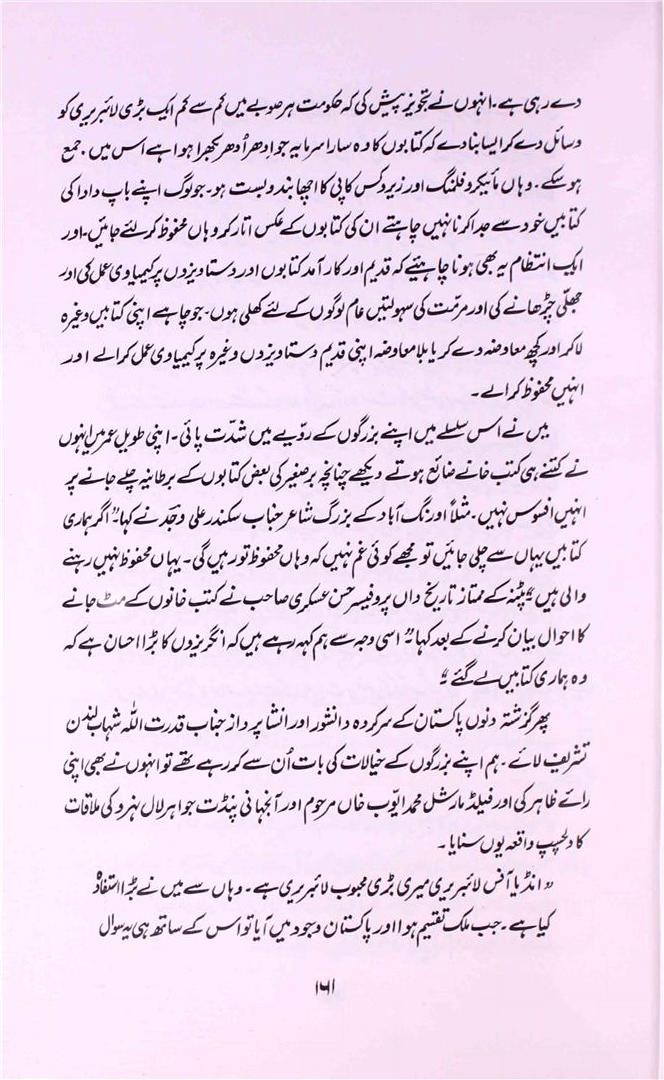 دے رہی ہے۔ انہوں نے تجویز پیش کی کہ حکومت ہر صوبے میں کم سے کم ایک بڑی لائبریری کو
وسائل دے کر ایسا بنا دے کہ کتابوں کا وہ سارا سرمایہ جو اِدھر اُدھر بکھرا ہوا ہے اس میں جمع
ہو سکے۔ وہاں مائیکرو فلمنگ اور زیروکس کاپی کا اچھا بندوبست ہو۔ جو لوگ اپنے باپ دادا کی
کتابیں خود سے جدا کرنا نہیں چاہتے ان کی کتابوں کے عکس اتار کر وہاں محفوظ کر لئے جائیں۔ اور
ایک انتظام یہ بھی ہونا چاہئیے کہ قدیم اور کار آمد کتابوں اور دستاویزوں پر کیمیاوی عمل کی اور
جھلّی چڑھانے کی اور مرمّت کی سہولتیں عام لوگوں کے لئے کھلی ہوں۔ جو چاہے اپنی کتابیں وغیرہ
لا کر اور کچھ معاوضہ دے کر یا بلا معاوضہ اپنی قدیم دستاویزوں وغیرہ پر کیمیاوی عمل کرالے اور
انہیں محفوظ کرالے۔
میں نے اس سلسلے میں اپنے بزرگوں کے رویّے میں شدّت پائی۔ اپنی طویل عمر میں انہوں
نے کتنے ہی کتب خانے ضائع ہوتے دیکھے چنانچہ برصغیر کی بعض کتابوں کے برطانیہ چلے جانے پر
انہیں افسوس نہیں۔ مثلاً اورنگ آباد کے بزرگ شاعر جناب سکندر علی وجد نے کہا "اگر ہماری
کتابیں یہاں سے چلی جائیں تو مجھے کوئی غم نہیں کہ وہاں محفوظ تو رہیں گی۔ یہاں محفوظ نہیں رہنے
والی ہیں" پٹنہ کے ممتاز تاریخ داں پروفیسر حسن عسکری صاحب نے کتب خانوں کے مٹ جانے
کا احوال بیان کرنے کے بعد کہا "اسی وجہ سے ہم کہہ رہے ہیں کہ انگریزوں کا بڑا احسان ہے کہ
وہ ہماری کتابیں لے گئے"
پھر گزشتہ دنوں پاکستان کے سرکردہ دانشور اور انشا پرداز جناب قدرت اللہ شہاب لندن
تشریف لائے۔ ہم اپنے بزرگوں کے خیالات کی بات اُن سے کر رہے تھے تو انہوں نے بھی اپنی
رائے ظاہر کی اور فیلڈ مارشل محمد ایّوب خاں مرحوم اور آنجہانی پنڈت جواہر لال نہرو کی ملاقات
کا دلچسپ واقعہ یوں سنایا۔
"انڈیا آفس لائبریری میری بڑی محبوب لائبریری ہے۔ وہاں سے میں نے بڑا استفادہ
کیا ہے۔ جب ملک تقسیم ہوا اور پاکستان وجود میں آیا تو اس کے ساتھ ہی یہ سوال
۱۶۱